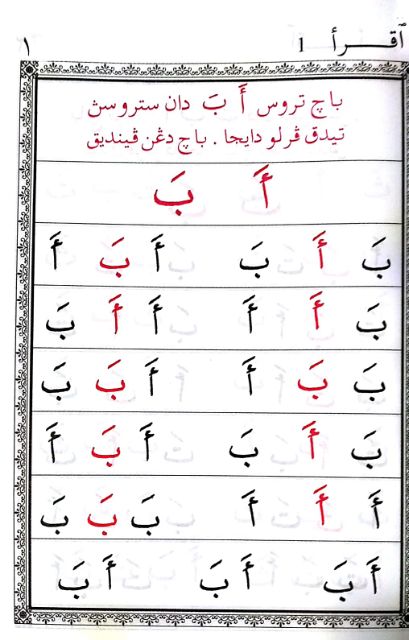 ٱقرأ 1 ١
باچ تروس أَ بَ دان ستروسڽ
تيدق ڤرلو دايجا . باچ دڠن ڤينديق
أَ بَ
بَ أَ بَ أَ بَ أَ
بَ أَ أَ أَ أَ بَ
بَ بَ أَ أَ بَ بَ
بَ أَ بَ أَ بَ أَ
أَ أَ أَ بَ بَ بَ
أَ بَ أَ بَ أَ بَ